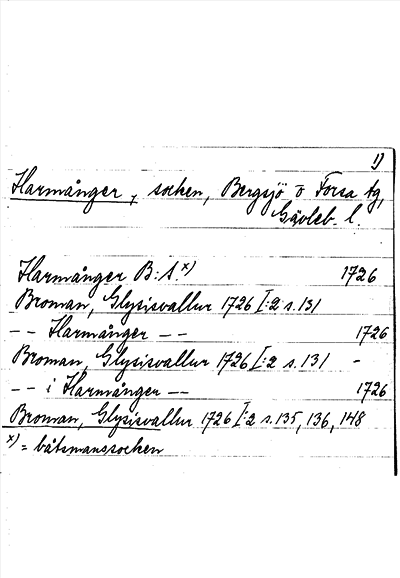 1)
Harmånger, socken, Bergsjö o Forsa tg,
Gävleb. l.
Harmånger B:S.x) 1726
Broman, Glysisvallur 1726 I:2 s.131
-- Harmånger -- 1726
Broman, Glysisvallur 1726 I:2 s.131 -
-- i Harmånger -- 1726
Broman, Glysisvallur 1726 I:2 s.135, 136, 148
x) = båtsmanssocken